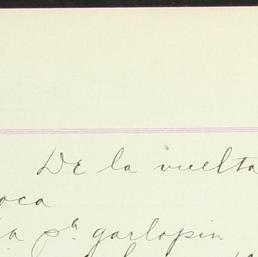 De la vuelta
oca
ia pª garlopin